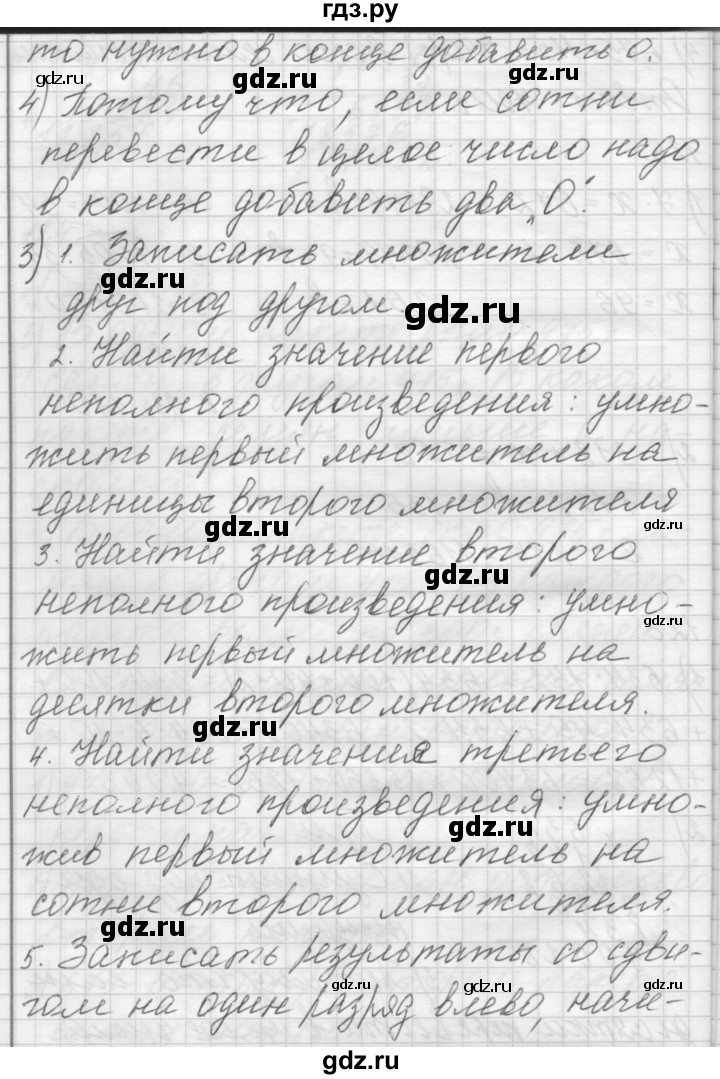 гдз.ру
то нужно в конце добавить 0.
gdz.ru
gdz.ru
gdz.ru
4) Потому что, если сотни
перевести в целое число надо
в конце добавить два „0“.
3) 1. Записать множители
gdz.ru
друг под другом.
gdz.ru
2. Найти значение первого
неполного произведения: умно-
жить первый множитель на
единицы второго множителя
gdz.ru
gdz.ru
3. Найти значение второго
gdz.ru
неполного произведения: умно-
gdz.ru
жить первый множитель на
десятки второго множителя.
gdz.ru
4. Найти значение третьего
неполного произведения: умно-
gdz.ru
жив первый множитель на
сотни второго множителя.
gdz.ru
5. Записать результаты со сдви-
gdz.ru
гом на один разряд влево, начи-
gdz.ru